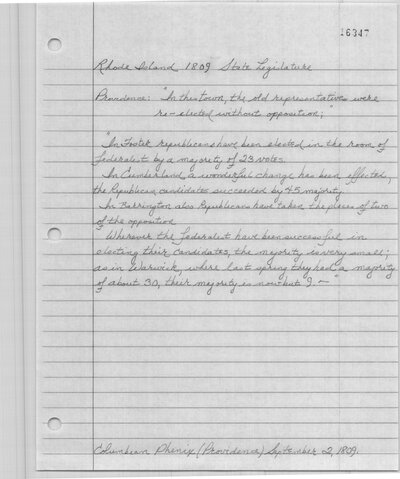 16347
Rhode Island 1809 State Legislature
Providence: "In this town, the old representatives were
re-elected without opposition;"
"In Foster republicans have been elected in the room of
federalist by a majority of 23 votes.
In Cumberland, a wonderful change has been effected,
the Republican candidates succeeded by 45 majority.
In Barrington also Republicans have taken the places of two
of the opposition
Wherever the federalist have been successful in
electing their candidates, the majority is very small;
as in Warwick, where last spring they had a majority
of about 30, their majority is now but 9.—"
Columbian Phenix (Providence) September 2, 1809.